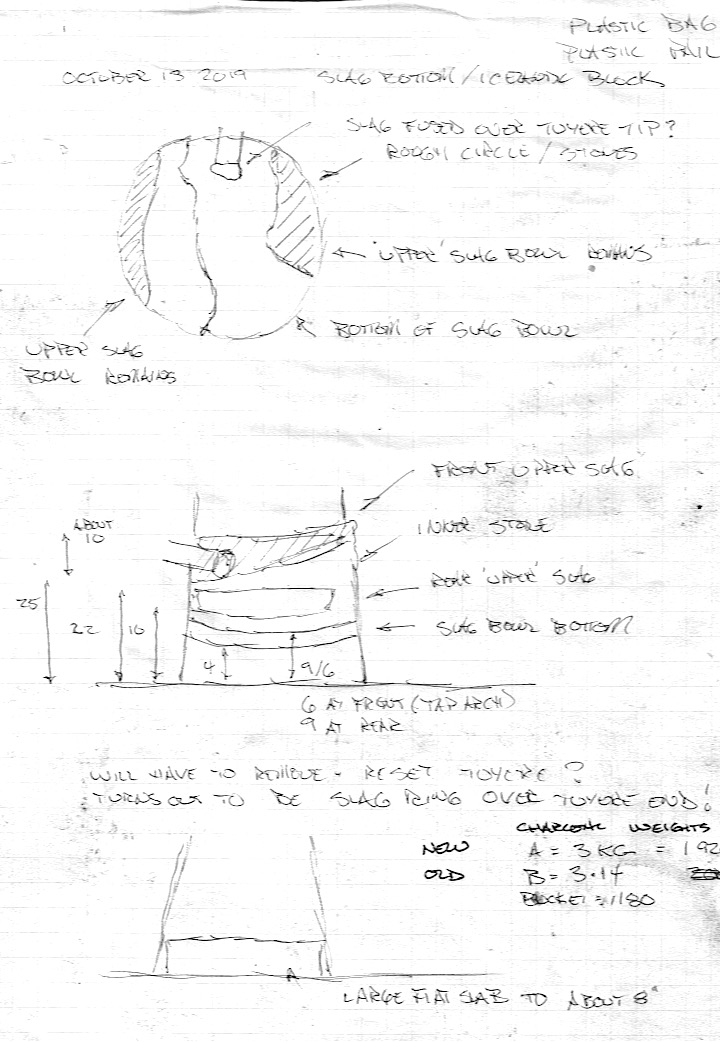 PLASTIC BAG
PLASTIC PAIL
OCTOBER 13 2019 SLAG BOTTOM / ICELANDIC BLOCK
SLAG FUSED OVER TUYERE TIP?
ROUGH CIRCLE / STONES
'UPPER' SLAG BOWL REMAINS
BOTTOM OF SLAG BOWL
UPPER SLAG
BOWL REMAINS
FRONT UPPER SLAG
ABOUT
10
INNER STONE
REAR 'UPPER' SLAG
25
22
16
SLAG BOWL BOTTOM
4
9/6
6 AT FRONT (TAP ARCH)
9 AT REAR
WILL HAVE TO REMOVE - RESET TUYERE?
TURNS OUT TO BE SLAG RING OVER TUYERE END!
CHARCOAL WEIGHTS
NEW A = 3 KG = 192
OLD B = 3.14
BUCKET = 1180
LARGE FLAT SLAB TO ABOUT 8"